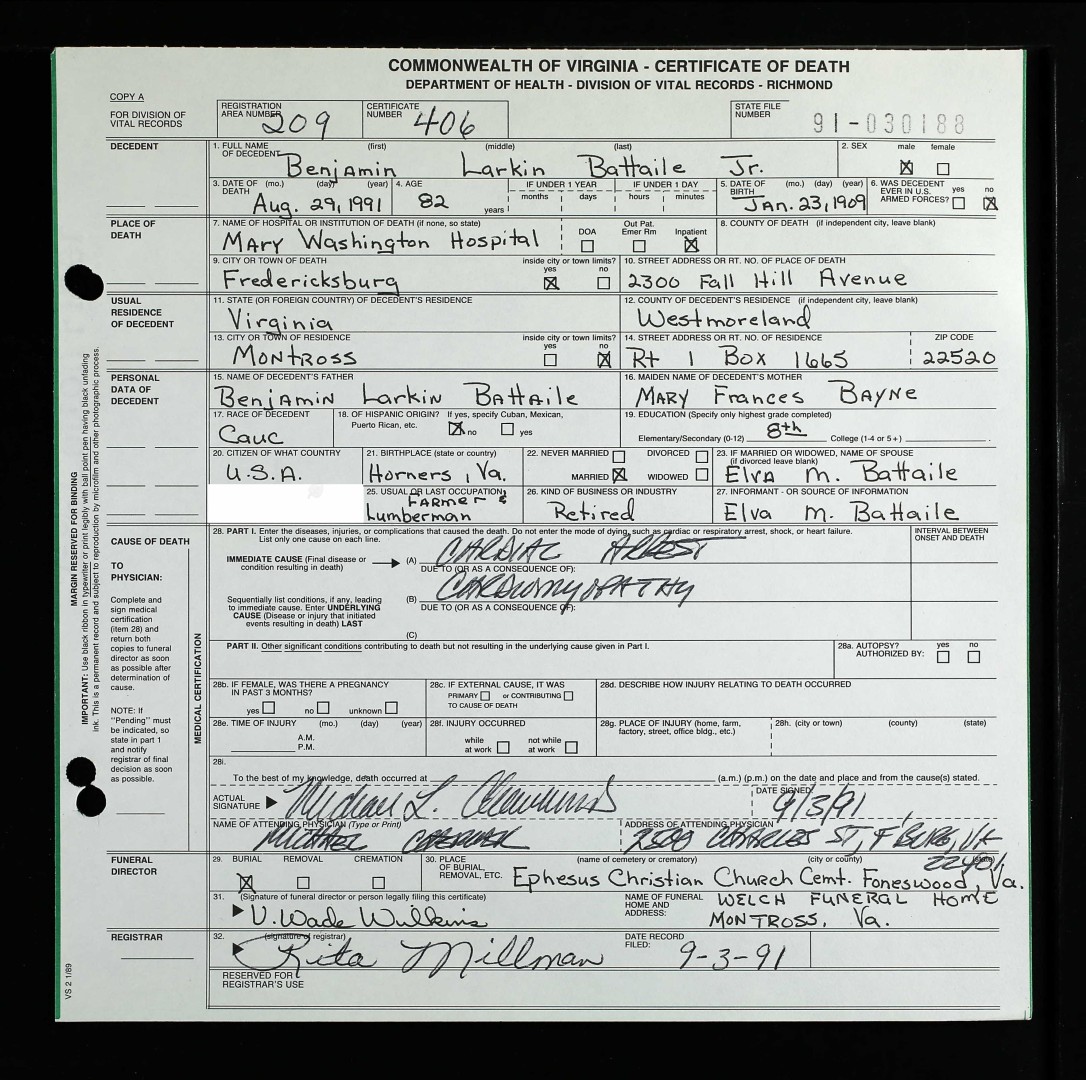 COMMONWEALTH OF VIRGINIA - CERTIFICATE OF DEATH
DEPARTMENT OF HEALTH - DIVISION OF VITAL RECORDS - RICHMOND
COPY A
FOR DIVISION OF VITAL RECORDS
REGISTRATION AREA NUMBER 209
CERTIFICATE NUMBER 406
STATE FILE NUMBER 91-030188
DECEDENT
1. FULL NAME OF DECEDENT (first) (middle) (last)
Benjamin Larkin Battaile Jr.
2. SEX male female
3. DATE OF DEATH (mo.) (day) (year) Aug. 29, 1991
4. AGE 82 years
IF UNDER 1 YEAR months days
IF UNDER 1 DAY hours minutes
5. DATE OF BIRTH (mo.) (day) (year) Jan. 23, 1909
6. WAS DECEDENT EVER IN U.S. ARMED FORCES? yes no
PLACE OF DEATH
7. NAME OF HOSPITAL OR INSTITUTION OF DEATH (if none, so state)
Mary Washington Hospital
DOA Out Pat. Emer Rm Inpatient
8. COUNTY OF DEATH (if independent city, leave blank)
9. CITY OR TOWN OF DEATH inside city or town limits? yes no
Fredericksburg
10. STREET ADDRESS OR RT. NO. OF PLACE OF DEATH
2300 Fall Hill Avenue
USUAL RESIDENCE OF DECEDENT
11. STATE (OR FOREIGN COUNTRY) OF DECEDENT'S RESIDENCE
Virginia
12. COUNTY OF DECEDENT'S RESIDENCE (if independent city, leave blank)
Westmoreland
13. CITY OR TOWN OF RESIDENCE inside city or town limits? yes no
Montross
14. STREET ADDRESS OR RT. NO. OF RESIDENCE ZIP CODE
Rt 1 Box 1665 22520
PERSONAL DATA OF DECEDENT
15. NAME OF DECEDENT'S FATHER
Benjamin Larkin Battaile
16. MAIDEN NAME OF DECEDENT'S MOTHER
Mary Frances Bayne
17. RACE OF DECEDENT
Cauc
18. OF HISPANIC ORIGIN? If yes, specify Cuban, Mexican, Puerto Rican, etc. no yes
19. EDUCATION (Specify only highest grade completed)
Elementary/Secondary (0-12) 8th College (1-4 or 5+)
20. CITIZEN OF WHAT COUNTRY
U.S.A.
21. BIRTHPLACE (state or country)
Horners, Va.
22. NEVER MARRIED DIVORCED
MARRIED WIDOWED
23. IF MARRIED OR WIDOWED, NAME OF SPOUSE (if divorced leave blank)
Elva M. Battaile
25. USUAL OR LAST OCCUPATION
Farmer & Lumberman
26. KIND OF BUSINESS OR INDUSTRY
Retired
27. INFORMANT - OR SOURCE OF INFORMATION
Elva M. Battaile
CAUSE OF DEATH
TO PHYSICIAN:
Complete and sign medical certification (item 28) and return both copies to funeral director as soon as possible after determination of cause.
NOTE: If "Pending" must be indicated, so state in part 1 and notify registrar of final decision as soon as possible.
MEDICAL CERTIFICATION
28. PART I. Enter the diseases, injuries, or complications that caused the death. Do not enter the mode of dying, such as cardiac or respiratory arrest, shock, or heart failure.
List only one cause on each line.
INTERVAL BETWEEN ONSET AND DEATH
IMMEDIATE CAUSE (Final disease or condition resulting in death) (A) CARDIAC ARREST
DUE TO (OR AS A CONSEQUENCE OF):
Sequentially list conditions, if any, leading to immediate cause. Enter UNDERLYING CAUSE (Disease or injury that initiated events resulting in death) LAST
(B) CARDIOMYOPATHY
DUE TO (OR AS A CONSEQUENCE OF):
(C)
PART II. Other significant conditions contributing to death but not resulting in the underlying cause given in Part I.
28a. AUTOPSY? AUTHORIZED BY: yes no
28b. IF FEMALE, WAS THERE A PREGNANCY IN PAST 3 MONTHS?
yes no unknown
28c. IF EXTERNAL CAUSE, IT WAS
PRIMARY or CONTRIBUTING
TO CAUSE OF DEATH
28d. DESCRIBE HOW INJURY RELATING TO DEATH OCCURRED
28e. TIME OF INJURY (mo.) (day) (year)
A.M.
P.M.
28f. INJURY OCCURRED
while at work not while at work
28g. PLACE OF INJURY (home, farm, factory, street, office bldg., etc.)
28h. (city or town) (county) (state)
28i.
To the best of my knowledge, death occurred at (a.m.) (p.m.) on the date and place and from the cause(s) stated.
ACTUAL SIGNATURE Michael L.
DATE SIGNED 9/3/91
NAME OF ATTENDING PHYSICIAN (Type or Print)
MICHAEL
ADDRESS OF ATTENDING PHYSICIAN
CHARLES ST, F'BURG, VA
22401
FUNERAL DIRECTOR
29. BURIAL REMOVAL CREMATION
30. PLACE OF BURIAL, REMOVAL, ETC. (name of cemetery or crematory) (city or county) (state)
Ephesus Christian Church Cemt. Foneswood, Va.
31. (Signature of funeral director or person legally filing this certificate)
V. Wade Wilkins
NAME OF FUNERAL HOME AND ADDRESS:
WELCH FUNERAL HOME
MONTROSS, Va.
REGISTRAR
32. (signature of registrar)
Rita Millman
DATE RECORD FILED:
9-3-91
RESERVED FOR REGISTRAR'S USE
VS 2 1/89
MARGIN RESERVED FOR BINDING
IMPORTANT: Use black ribbon in typewriter or print legibly with ball point pen having black unfading
ink. This is a permanent record and subject to reproduction by microfilm and other photographic process.